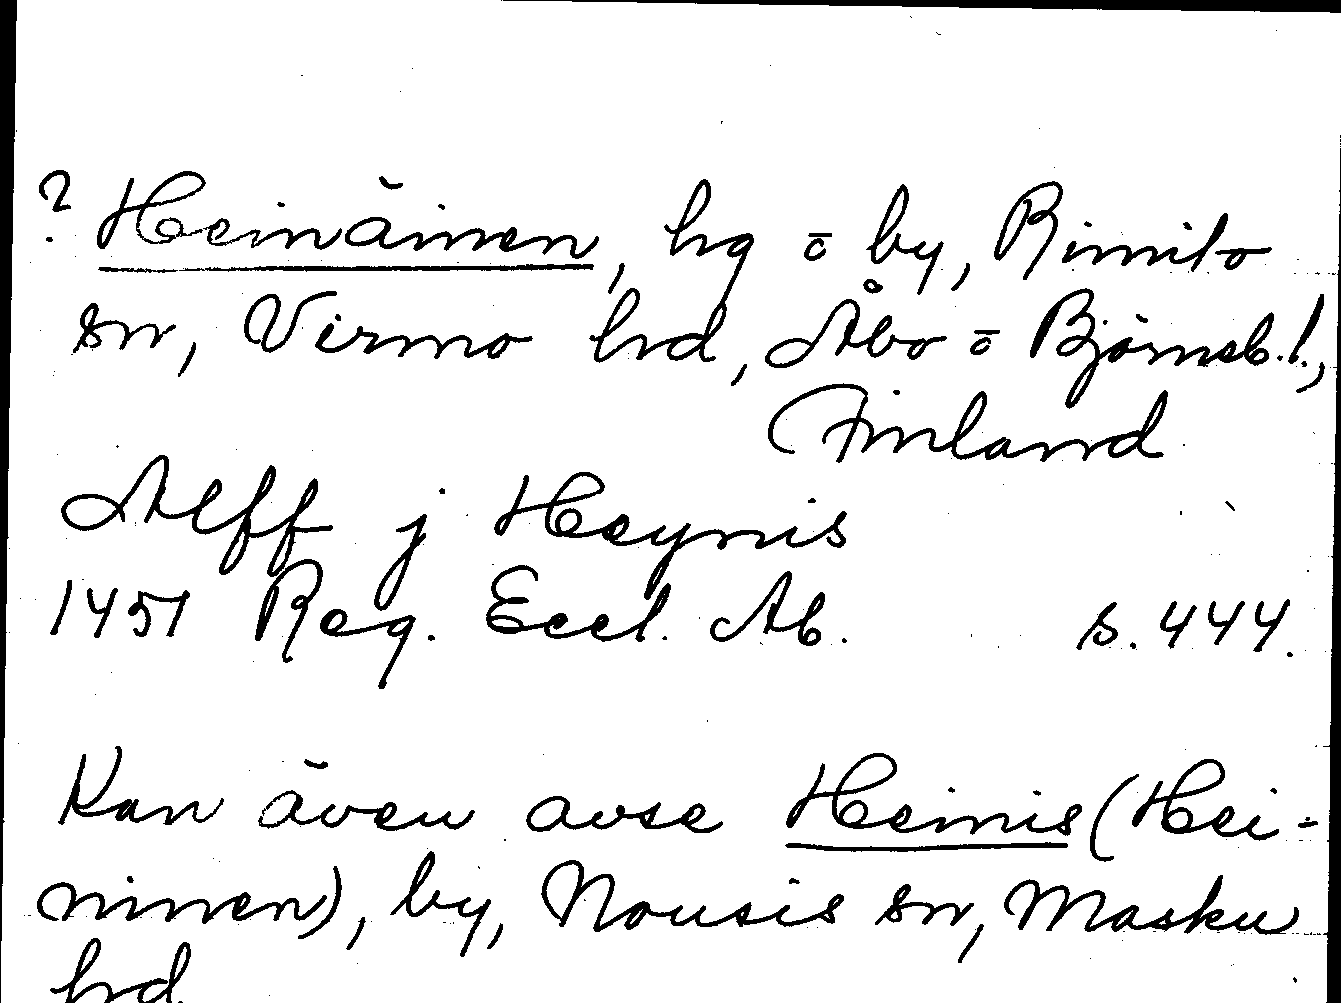 ? Heinäinen, hg o by, Rimito
sn, Virmo hd, Åbo o Björneb. l.,
Finland
Aleff j Heynis
1451 Reg. Eccl. Ab. s. 444.
Kan även avse Heinis (Hei-
ninen), by, Nousis sn, Masku
hd